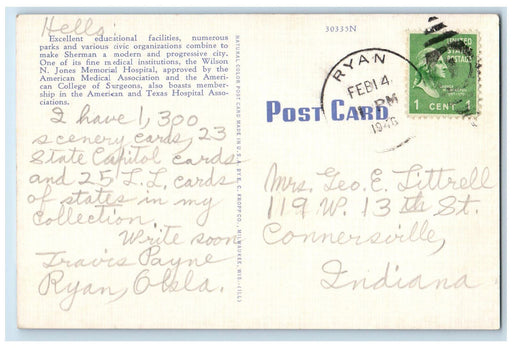 Hello
30335N
Excellent educational facilities, numerous
parks and various civic organizations combine to
make Sherman a modern and progressive city.
One of its fine medical institutions, the Wilson
N. Jones Memorial Hospital, approved by the
American Medical Association and the Ameri-
can College of Surgeons, also boasts member-
ship in the American and Texas Hospital Asso-
ciations.
I have 1,300
scenery cards, 23
State Capitol cards
and 25 L.L. cards
of states in my
collection.
Write soon
Travis Payne
Ryan, Okla.
NATURAL COLOR POST CARD MADE IN U.S.A. BY E. C. KROPP CO., MILWAUKEE, WIS.
POST CARD
RYAN
FEB 14
PM
1946
UNITED
STATES
POSTAGE
1 CENT 1
Mrs. Geo. E. Littrell
119 W. 13th St.
Connersville,
Indiana.